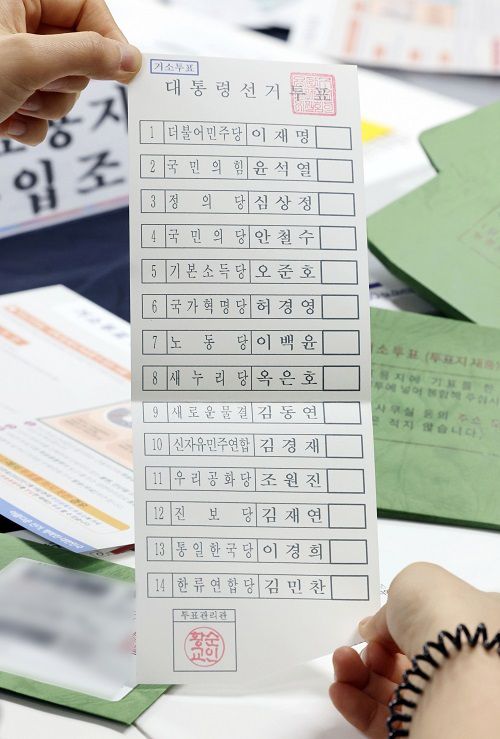 거소투표
대통령선거투표
1 더불어민주당 이재명
2 국민의힘 윤석열
3 정의당 심상정
4 국민의당 안철수
5 기본소득당 오준호
6 국가혁명당 허경영
7 노동당 이백윤
8 새누리당 옥은호
9 새로운물결 김동연
10 신자유민주연합 김경재
11 우리공화당 조원진
12 진보당 김재연
13 통일한국당 이경희
14 한류연합당 김민찬
투표관리관
황순
교인
거소투표 (투표지재중)